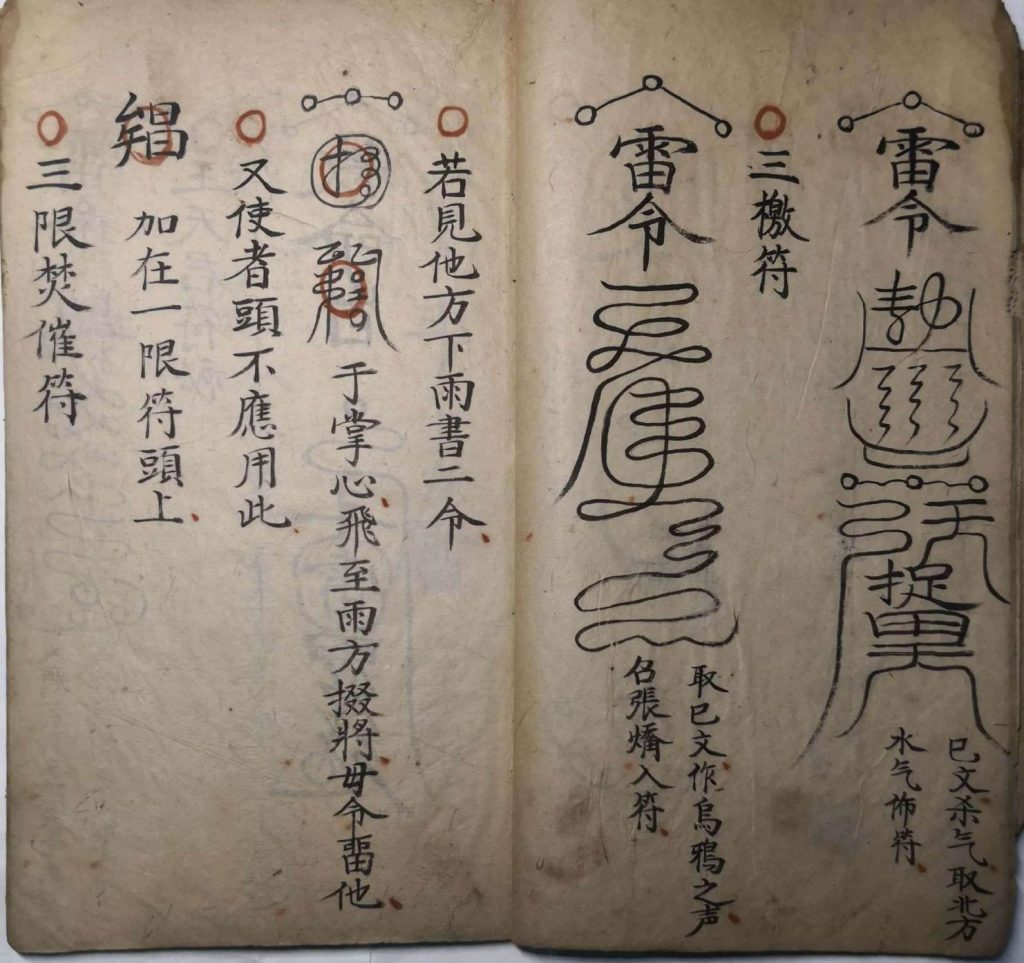 雷令
巳文杀气取北方
水气怖符
三檄符
雷令
取巳文作烏鴉之声
召張燏入符
若見他方下雨書二令
于掌心飛至雨方掇將毋令畱他
又使者頭不應用此
加在一限符頭上
三限焚催符